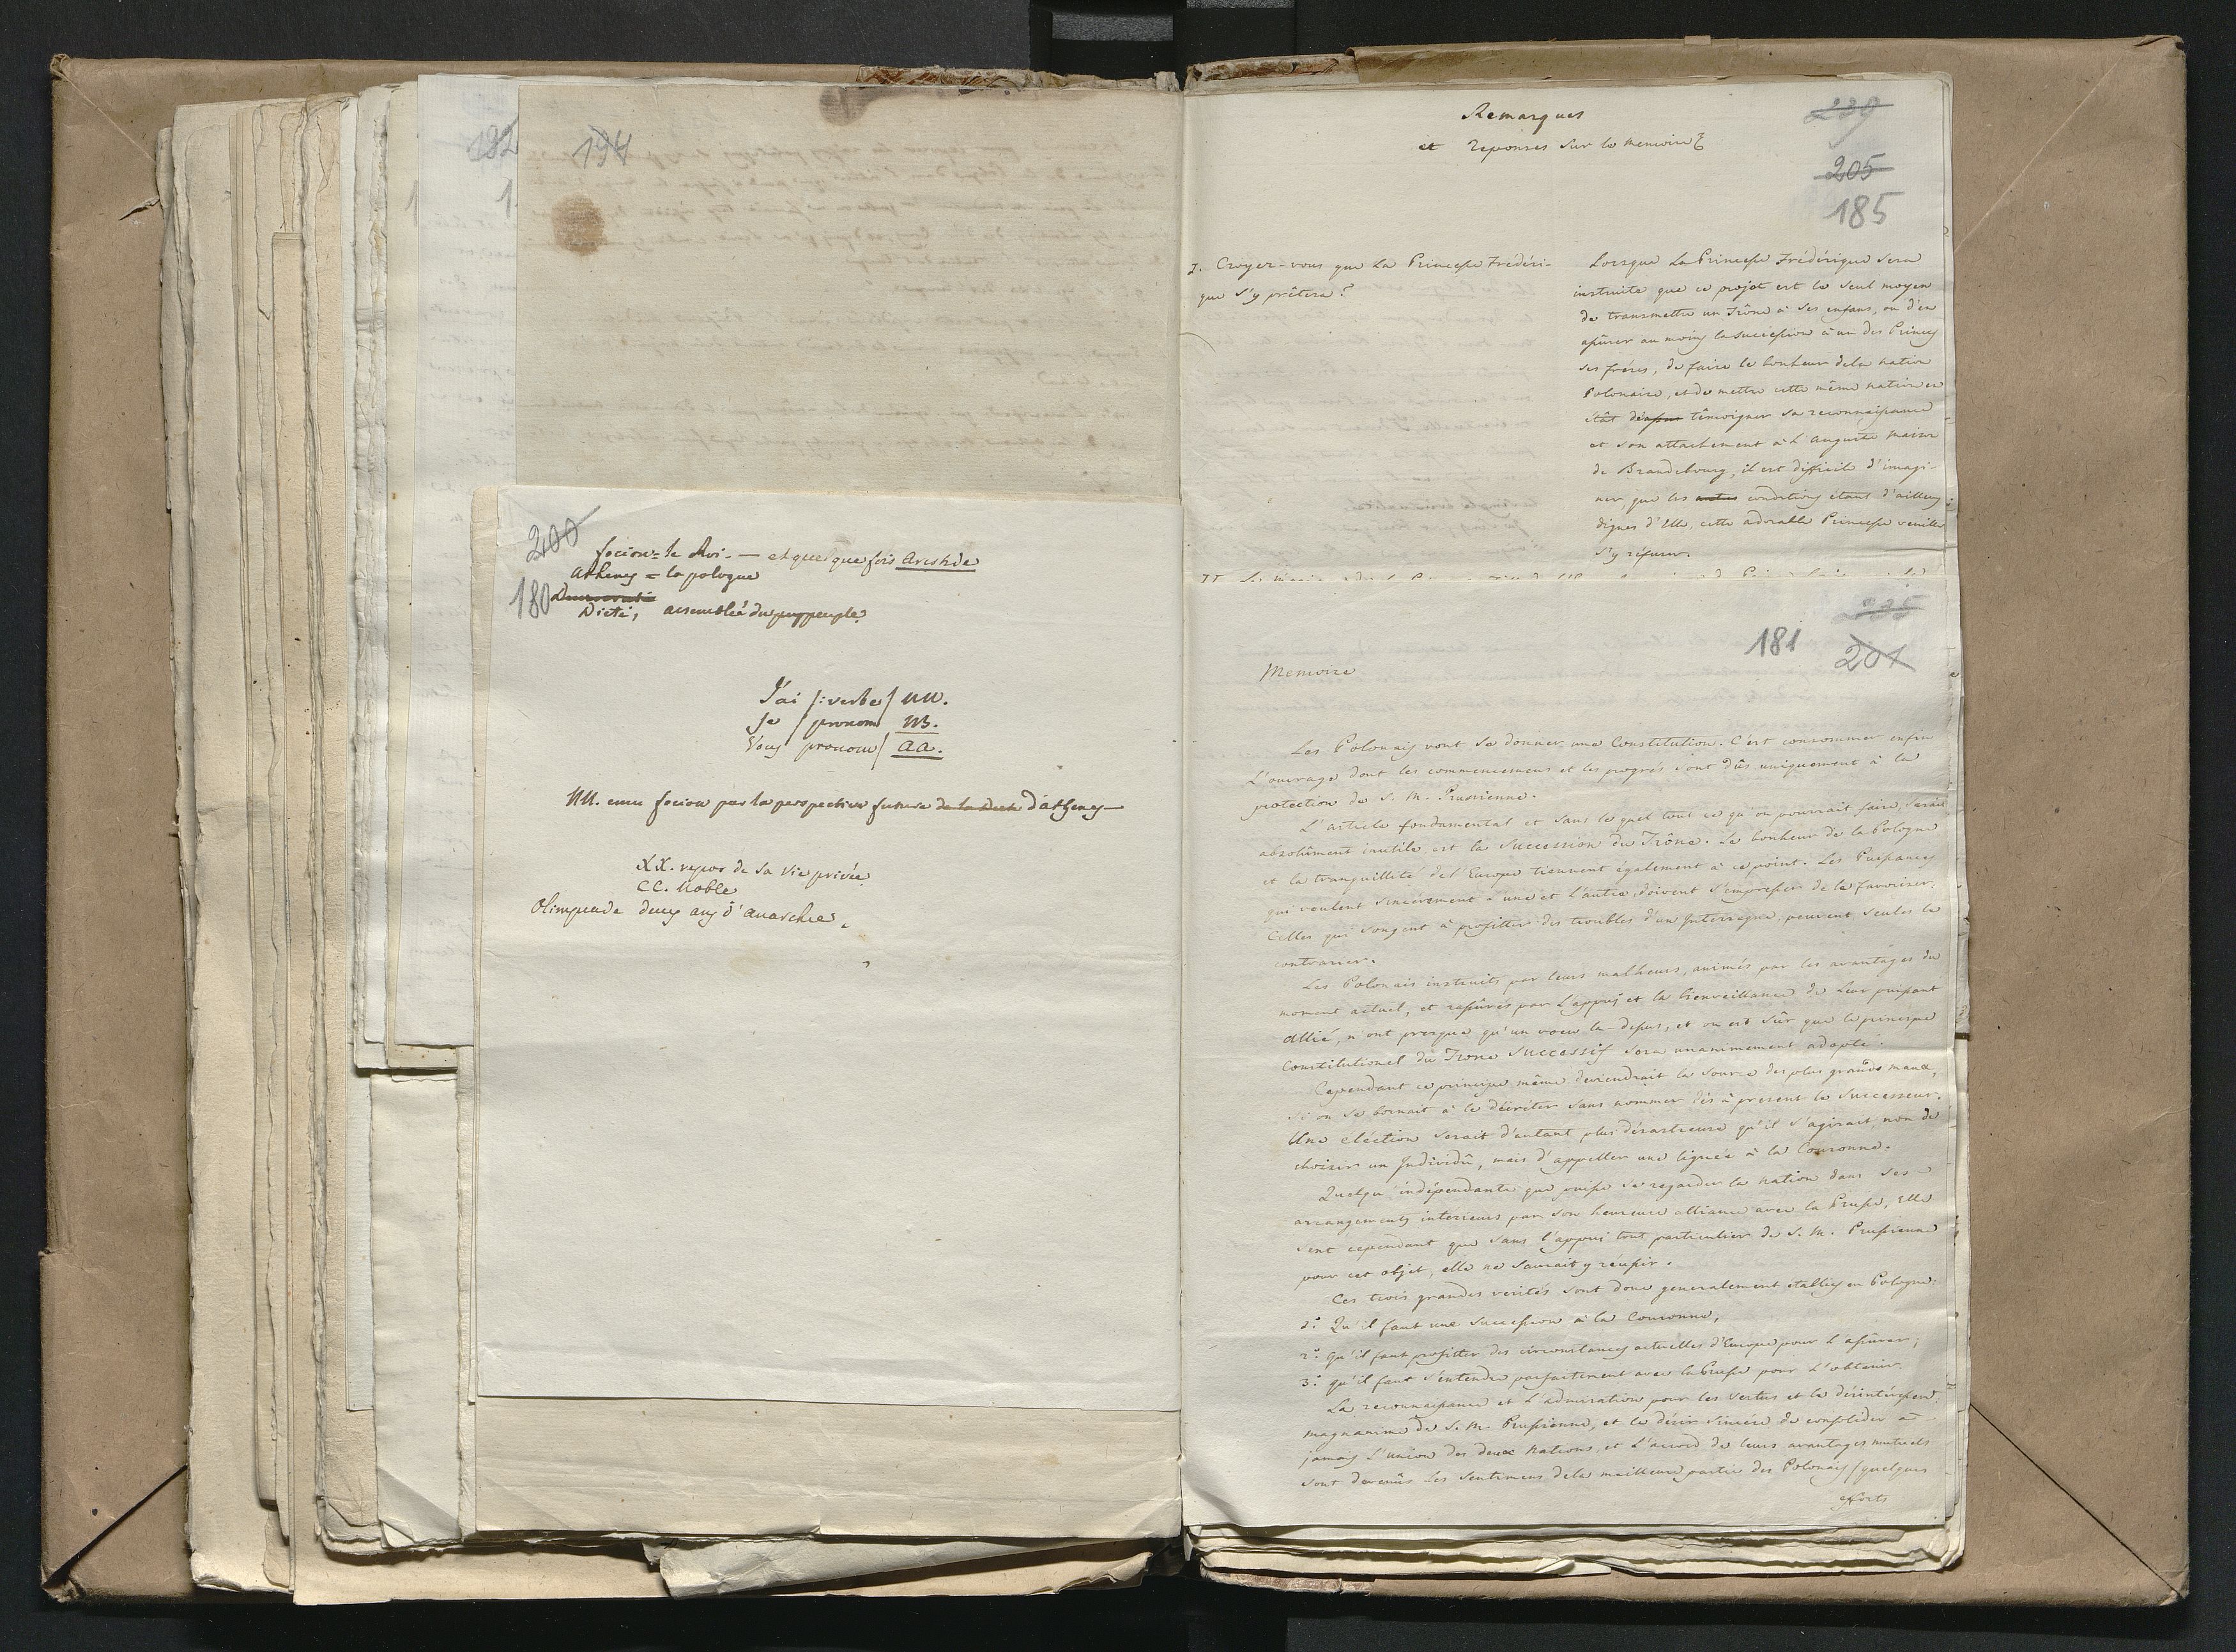 182
194
200
180
focion = le Roi. — et quelque fois Aristide
Athenes = la pologne
Diete, assemblée du peuple
J'ai /: verbe / nn.
Je / pronom nB.
Vous pronom / aa.
nn. focion par la perspective future de la Diete d'athenes —
XX. repos de sa vie privée
CC. Noble
Olimpiade deux ans d'anarchie.
Remarques
et reponses sur le memoire
230
205
185
I. Croyez-vous que la Princesse Frédéri-
que s'y prêtera?
Lorsque la Princesse Frédérique sera
instruite que ce projet est le seul moyen
de transmettre un Trône à ses enfans, ou d'en
assûrer au moins la succession à un des Princes
ses frères, de faire le bonheur de la nation
Polonaise, et de mettre cette même nation en
état de témoigner sa reconnaissance
et son attachement à l'auguste maison
de Brandebourg, il est difficile d'imagi-
ner, que les autres conditions étant d'ailleurs
dignes d'Elle, cette adorable Princesse veuille
s'y refuser.
235
181
201
Memoire
Les Polonais vont se donner une Constitution. C'est consommer enfin
L'ouvrage dont les commencemens et les progrés sont dûs uniquement à la
protection de S. M. Prussienne.
L'article fondamental et sans lequel tout ce qu'on pourrait faire, serait
absolûment inutile est la Succession du Trône. Le bonheur de la Pologne
et la tranquillité de l'Europe tiennent également à ce point. Les Puissances
qui veulent sincèrement l'une et l'autre, doivent s'empresser de la favoriser;
Celles qui songent à profitter des troubles d'un Interrègne, peuvent seules la
contrarier.
Les Polonais instruits par leurs malheurs, animés par les avantages du
moment actuel, et rassûrés par L'appui et la bienveillance de leur puissant
Allié, n'ont presque qu'un voeu la-dessus, et on est sûr que le principe
Constitutionel du Trone Successif sera unanimement adopté.
Cependant ce principe même deviendrait la source des plus grands maux,
si on se bornait à le décréter sans nommer dès à present le Successeur.
Une éléction serait d'autant plus désastreuse qu'il s'agirait, non de
choisir un Individû, mais d'appeller une lignée à la Couronne.
Quelqu'indépendante que puisse se regarder la nation dans ses
arrangements interieurs par son heureuse alliance avec la Prusse, Elle
sent cependant que sans l'appui tout particulier de S. M. Prussienne
pour cet objet, elle ne saurait y réussir.
Ces trois grandes verités sont donc generalement etablies en Pologne:
1º. Qu'il faut une Succession à la Couronne;
2º. qu'il faut profitter des circonstances actuelles d'Europe pour L'assûrer;
3º. qu'il faut s'entendre parfaitement avec la Prusse pour L'obtenir.
La reconnaissance et L'admiration pour les vertus et le désintéressemt.
magnanime de S. M. Prussienne, et le désir sincère de consolider à
jamais L'union des deux Nations, et L'accord de leurs avantages mutuels
sont devenûs les sentimens de la meilleure partie des Polonais (quelques
efforts